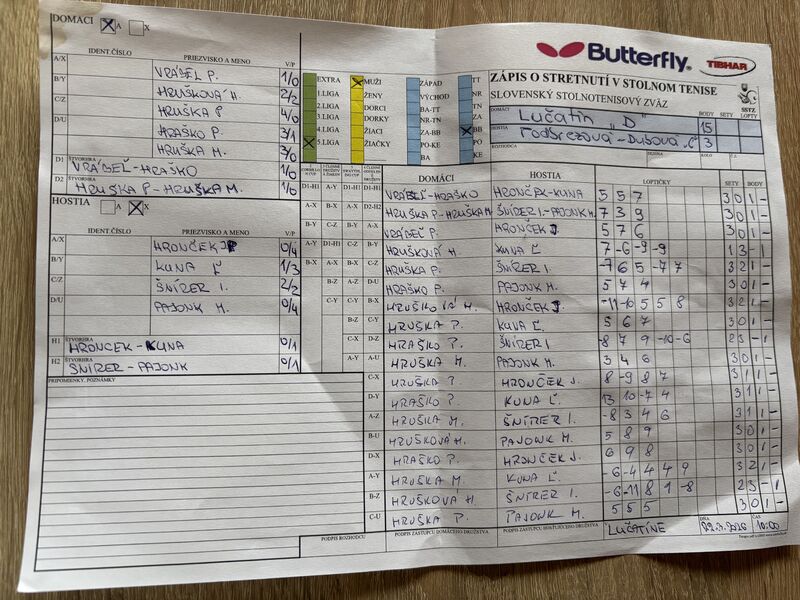 DOMÁCI A X
Butterfly
TIBHAR
IDENT.ČÍSLO PRIEZVISKO A MENO V/P
ZÁPIS O STRETNUTÍ V STOLNOM TENISE
SLOVENSKÝ STOLNOTENISOVÝ ZVÄZ
SSTZ
A/X VRÁBEĽ P. 1/0
B/Y HRUŠKOVÁ H. 2/2
C/Z HRUŠKA P. 4/0
D/U HRAŠKO P. 3/1
HRUŠKA M. 3/0
D1 ŠTVORHRA VRÁBEĽ-HRAŠKO 1/0
D2 ŠTVORHRA HRUŠKA P-HRUŠKA M. 1/0
EXTRA MUŽI ZÁPAD TT
1.LIGA ŽENY VÝCHOD NR
2.LIGA DORCI BA-TT TN
3.LIGA DORKY TN-NR ZA
4.LIGA ŽIACI ZA-BB BB
5.LIGA ŽIAČKY PO-KE PO
BA KE
DOMÁCI LUČATÍN "D" BODY 15 SETY LOPTY
HOSTIA PODBREZOVÁ-DUBOVÁ "C" 3
ROZHODCA SEZÓNA KOLO Č.Z.
HOSTIA A X
IDENT.ČÍSLO PRIEZVISKO A MENO V/P
A/X HRONČEK J. 0/4
B/Y KUNA Ľ. 1/3
C/Z ŠNÍRER I. 2/2
D/U PAJONK M. 0/4
H1 ŠTVORHRA HRONČEK-KUNA 0/1
H2 ŠTVORHRA ŠNÍRER-PAJONK 0/1
PRIPOMIENKY, POZNÁMKY
DOMÁCI HOSTIA LOPTIČKY SETY BODY
D1-H1 VRÁBEĽ-HRAŠKO HRONČEK-KUNA 5 5 7 3 0 1 -
D2-H2 HRUŠKA P-HRUŠKA M. ŠNÍRER I-PAJONK M. 7 3 9 3 0 1 -
A-X VRÁBEĽ P. HRONČEK J. 5 7 6 3 0 1 -
B-Y HRUŠKOVÁ H. KUNA Ľ. 7 -6 -9 -9 1 3 - 1
C-Z HRUŠKA P. ŠNÍRER I. -7 6 5 -7 7 3 2 1 -
D-U HRAŠKO P. PAJONK M. 5 7 4 3 0 1 -
B-X HRUŠKOVÁ H. HRONČEK J. -11 -10 5 5 8 3 2 1 -
C-Y HRUŠKA P. KUNA Ľ. 5 6 7 3 0 1 -
D-Z HRAŠKO P. ŠNÍRER I. -8 7 9 -10 -6 2 3 - 1
A-U HRUŠKA M. PAJONK M. 3 4 6 3 0 1 -
C-X HRUŠKA P. HRONČEK J. 8 -9 8 7 3 1 1 -
D-Y HRAŠKO P. KUNA Ľ. 13 10 -7 4 3 1 1 -
A-Z HRUŠKA M. ŠNÍRER I. -8 3 4 6 3 1 1 -
B-U HRUŠKOVÁ H. PAJONK M. 5 8 9 3 0 1 -
D-X HRAŠKO P. HRONČEK J. 6 9 8 3 0 1 -
A-Y HRUŠKA M. KUNA Ľ. -6 -4 4 4 9 3 2 1 -
B-Z HRUŠKOVÁ H. ŠNÍRER I. -6 -11 8 1 -8 2 3 - 1
C-U HRUŠKA P. PAJONK M. 5 5 5 3 0 1 -
PODPIS ROZHODCU PODPIS ZÁSTUPCU DOMÁCEHO DRUŽSTVA PODPIS ZÁSTUPCU HOSŤUJÚCEHO DRUŽSTVA LUČATÍNE DŇA ČAS 10:00